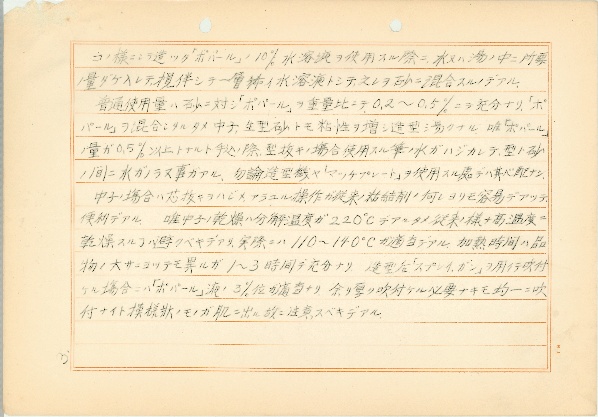 コノ様ニシテ造ッタ「ポバール」ノ10%水溶液ヲ使用スル際ニ、水又ハ湯ノ中ニ所要
量ダケ入レテ攪伴シテ一層稀イ水溶液トシテ之レヲ砂ニ混合スルノデアル。
普通使用量ハ砂ニ対シ「ポバール」ヲ重量比ニテ0.2〜0.5%ニテ充分ナリ、「ポ
バール」ヲ混合シタルタメ中子、生型砂トモ粘性ヲ増シ造型シ易クナル 唯「ポバール」
ノ量ガ0.5%以上トナルト手込ノ際、型抜キノ場合使用スル筆ノ水ガハジカレテ、型ト砂
ノ間ニ水ガ入ラヌ事ガアル、勿論造型機ヤ「マッチプレート」ヲ使用スル処デハ
中子ノ場合ハ芯抜キヲハジメ 操作ガ従来ノ粘結剤ノ何レヨリモ容易デアッテ、
便利デアル。 唯中子ノ乾燥ハ分解温度ガ220℃デアルタメ従来ノ様ナ高温度ニ
乾燥スルヲ避クベキデアリ、実際ニハ110〜140℃ガ適当デアル、加熱時間ハ品
物ノ大サニヨッテモ異ルガ1〜3時間デ充分ナリ 造型后「スプレイ、ガン」ヲ用イテ吹付
ケル場合ニハ「ポバール」液ノ3%位ガ適当ナリ 余リ厚ク吹付ケル必要ナキモ均一ニ吹
付ナイト模様状ノモノガ肌ニ出ル故ニ注意スベキデアル。